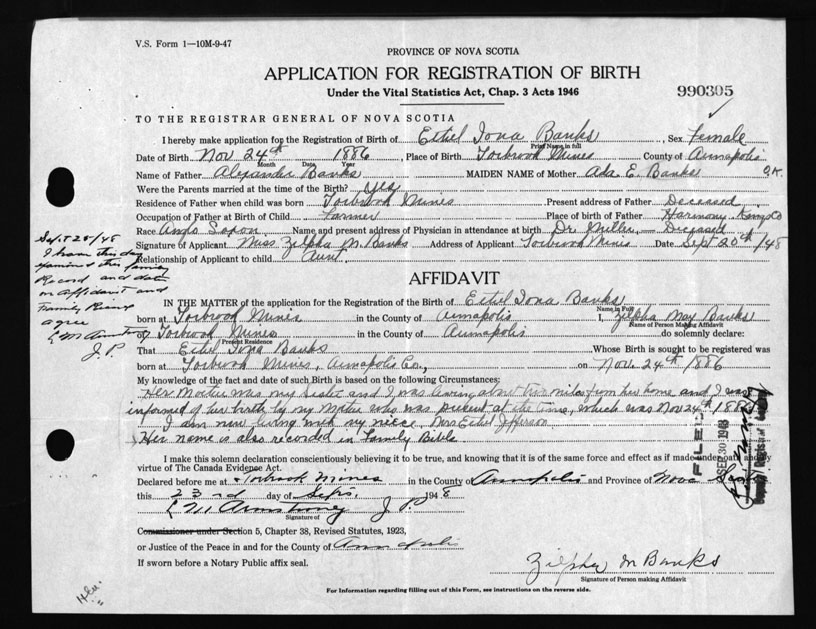 V.S. Form 1—10M-9-47
PROVINCE OF NOVA SCOTIA
APPLICATION FOR REGISTRATION OF BIRTH
Under the Vital Statistics Act, Chap. 3 Acts 1946
990305
TO THE REGISTRAR GENERAL OF NOVA SCOTIA
I hereby make application for the Registration of Birth of Ethel Iona Banks, Sex female
Print Name in full
Date of Birth Nov 24th 1886, Place of Birth Torbrook Mines County of Annapolis
Month Date Year
Name of Father Alexander Banks MAIDEN NAME of Mother Ada E. Banks O.K.
Were the Parents married at the time of the Birth? yes
Residence of Father when child was born Torbrook Mines Present address of Father Deceased
Occupation of Father at Birth of Child Farmer Place of birth of Father Harmony, Kings Co
Race Anglo Saxon Name and present address of Physician in attendance at birth Dr Miller, Deceased
Signature of Applicant Miss Zilpha M. Banks Address of Applicant Torbrook Mines Date Sept 20th/48
Relationship of Applicant to child Aunt.
Sept 28/48
I have this day
examined this family
Record and date
on Affidavit and
Family Record
agree
L M Armstrong
J.P.
AFFIDAVIT
IN THE MATTER of the application for the Registration of the Birth of Ethel Iona Banks
Name in Full
born at Torbrook Mines in the County of Annapolis I, Zilpha May Banks
Name of Person Making Affidavit
of Torbrook Mines in the County of Annapolis do solemnly declare:
Present Residence
That Ethel Iona Banks Whose Birth is sought to be registered was
born at Torbrook Mines, Annapolis Co., on Nov. 24th 1886
My knowledge of the fact and date of such Birth is based on the following Circumstances:
Her Mother was my sister and I was living about two miles from her home and I was
informed of her birth by my Mother who was present at the time, which was Nov 24th 1886
I am now living with my niece, Mrs Ethel Jefferson
Her name is also recorded in Family Bible
FILED
SEP 30 1948
I make this solemn declaration conscientiously believing it to be true, and knowing that it is of the same force and effect as if made under oath and by
virtue of The Canada Evidence Act.
Declared before me at Torbrook Mines in the County of Annapolis and Province of Nova Scotia
this 23rd day of Sept. 1948
L M Armstrong J.P.
Signature of
Commissioner under Section 5, Chapter 38, Revised Statutes, 1923,
or Justice of the Peace in and for the County of Annapolis
If sworn before a Notary Public affix seal.
Zilpha M Banks
Signature of Person making Affidavit
For Information regarding filling out of this Form, see instructions on the reverse side.